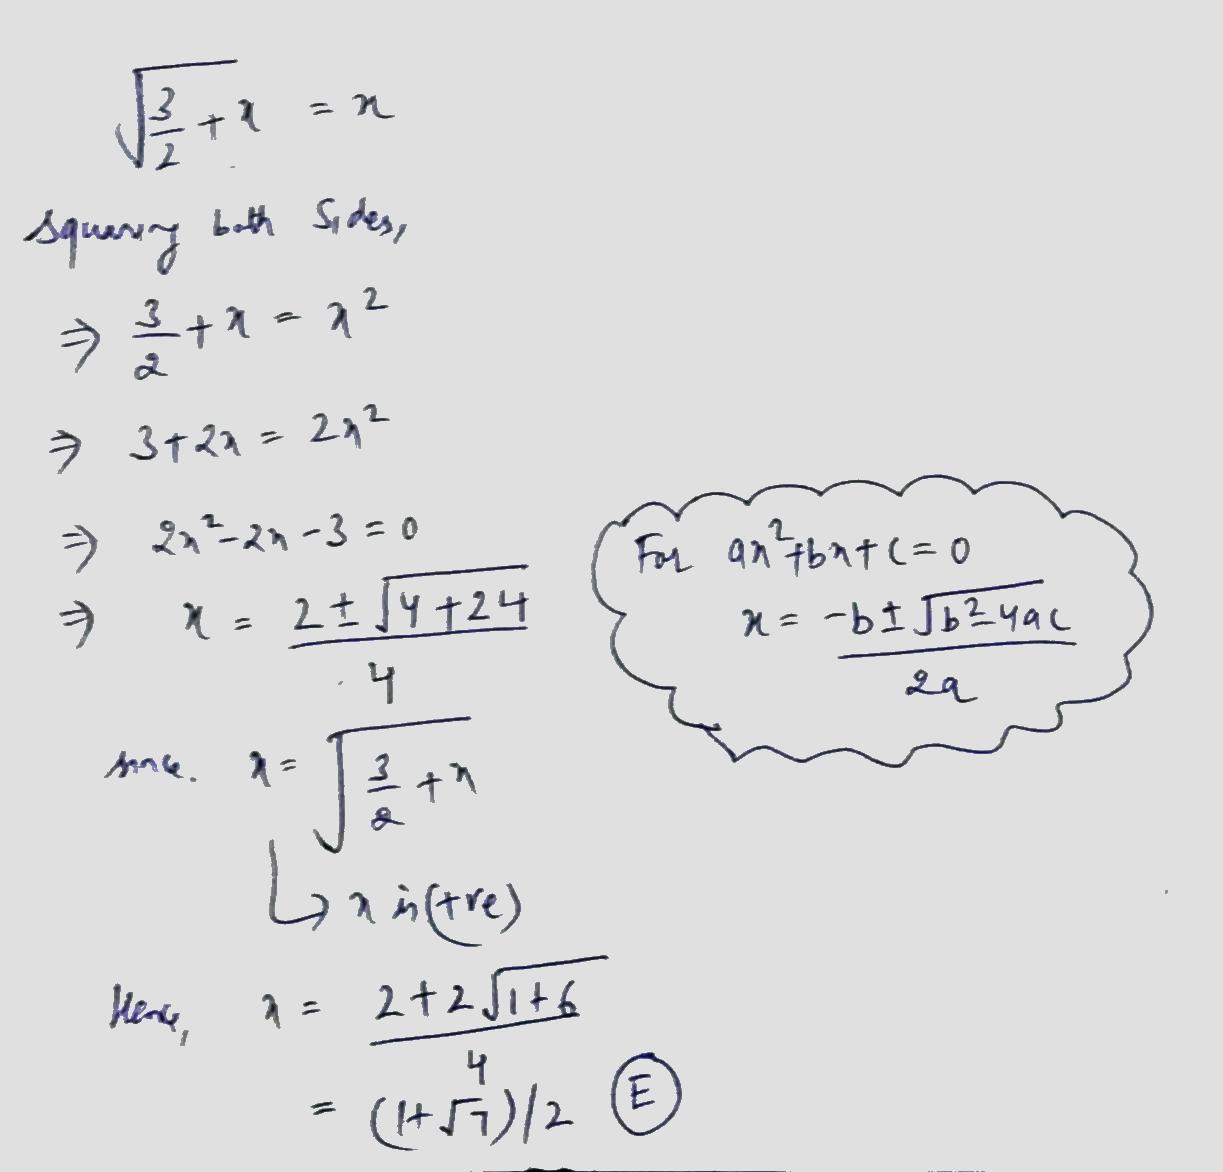 √(3/2 + x) = x
Squaring both Sides,
⇒ 3/2 + x = x²
⇒ 3+2x = 2x²
⇒ 2x²-2x-3 = 0
⇒ x = (2 ± √(4+24))/4
For ax²+bx+c=0
x = (-b ± √(b²-4ac))/2a
since. x = √(3/2 + x)
↳ x is (+ve)
Hence, x = (2+2√(1+6))/4
= (1+√7)/2 Ⓔ